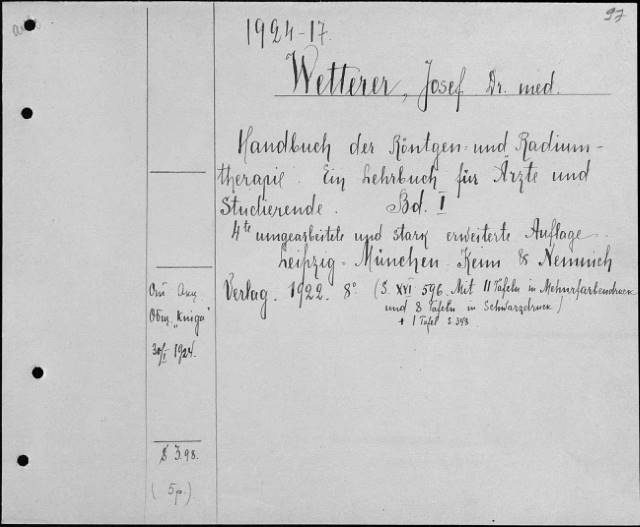 97
1924-17.
Wetterer, Josef Dr. med.
Handbuch der Röntgen- und Radium-
therapie. Ein Lehrbuch für Ärzte und
Studierende. Bd. I
4te umgearbeitete und stark erweiterte Auflage.
Leipzig-München Keim & Nemnich
Verlag. 1922. 8° (S. XVI 596. Mit 11 Tafeln in Mehrfarbendruck
und 8 Tafeln in Schwarzdruck)
+ 1 Tafel S 343
Отъ Акц
Общ. „Книга"
30/I 1924.
$ 3.98.
(5р.)